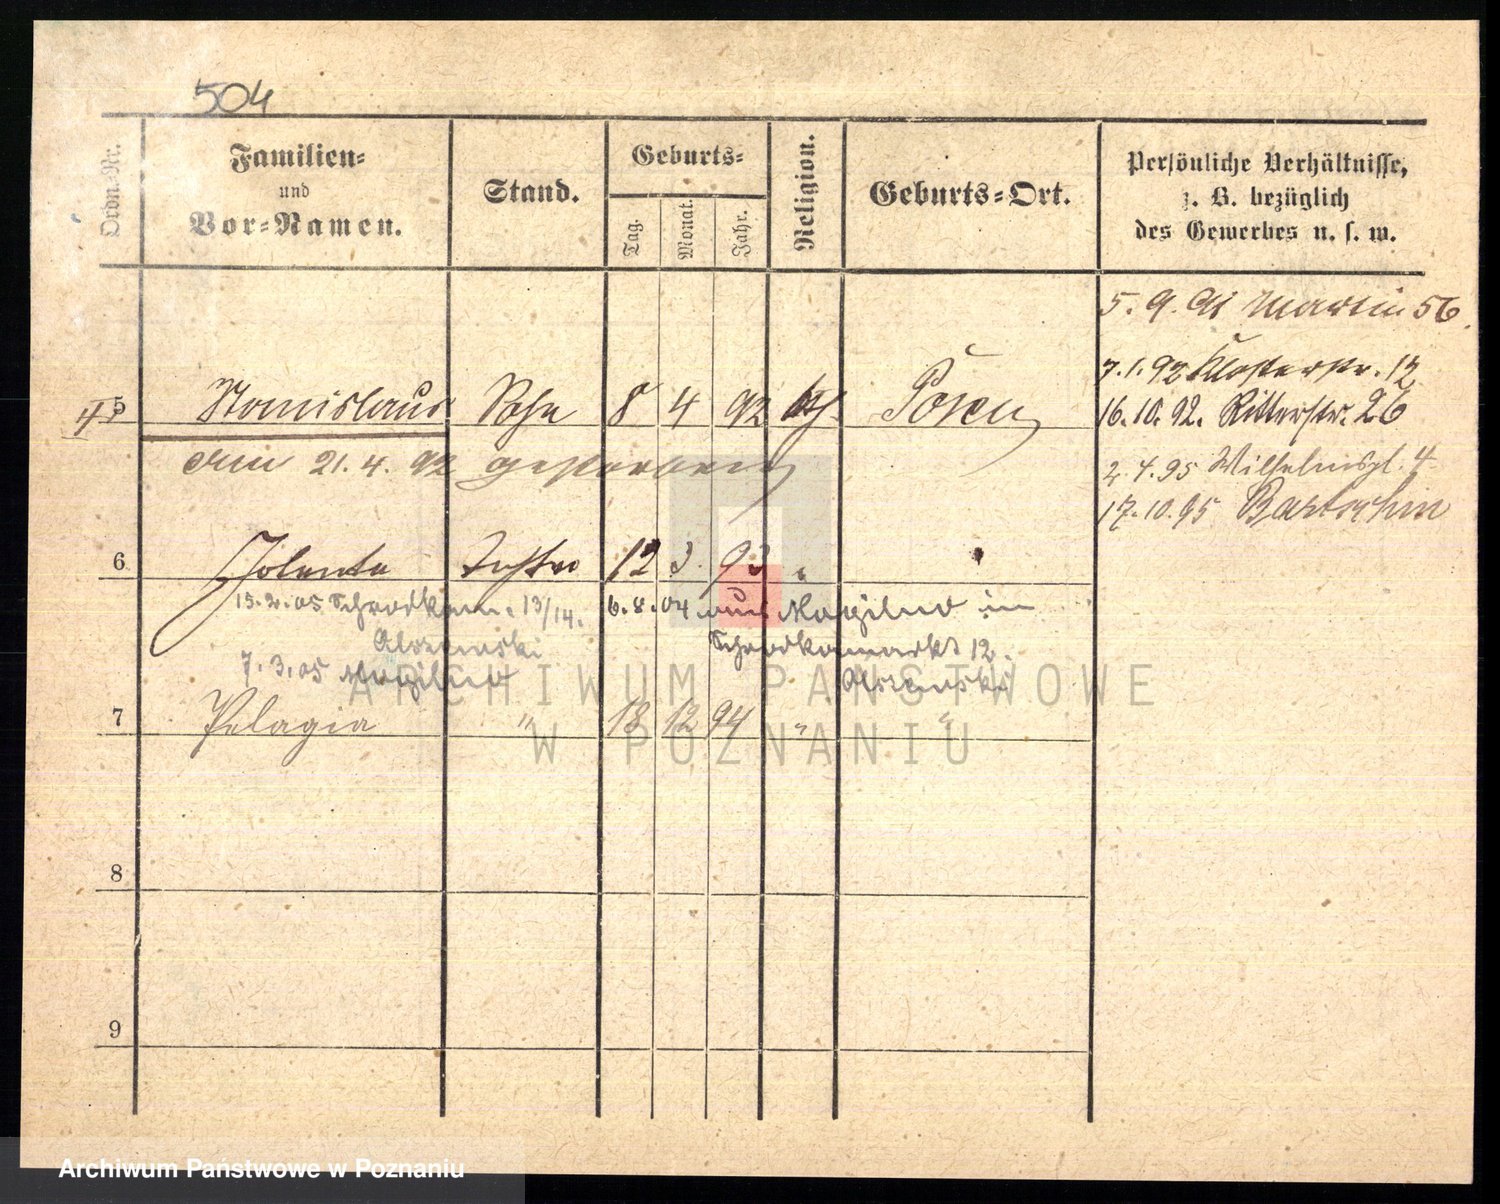 504
Ordn.-Nr.
Familien-
und
Vor-Namen.
Stand.
Geburts-
Tag.
Monat.
Jahr.
Religion.
Geburts-Ort.
Persönliche Verhältnisse,
z. B. bezüglich
des Gewerbes u. s. w.
5. 9. 91 Martin 56
7.1.92 Klosterstr. 12
16.10.92. Ritterstr. 26
2.4.95 Wilhelmspl. 4
17.10.95 Bartschin
5 Stanislaus Sohn 8 4 92 kth. Posen
am 21. 4. 92 gestorben
6 Jolenta Tochter 12 3. 93 "
15.2.05 Schrodkam. 13/14. 6.8.04 aus Mogilno in
Olszewski Schrodkamarkt 12
7.3.05 Mogilno Olszewski
7 Pelagia " 18 12 94 " "
8
9
ARCHIWUM PAŃSTWOWE
W POZNANIU
Archiwum Państwowe w Poznaniu